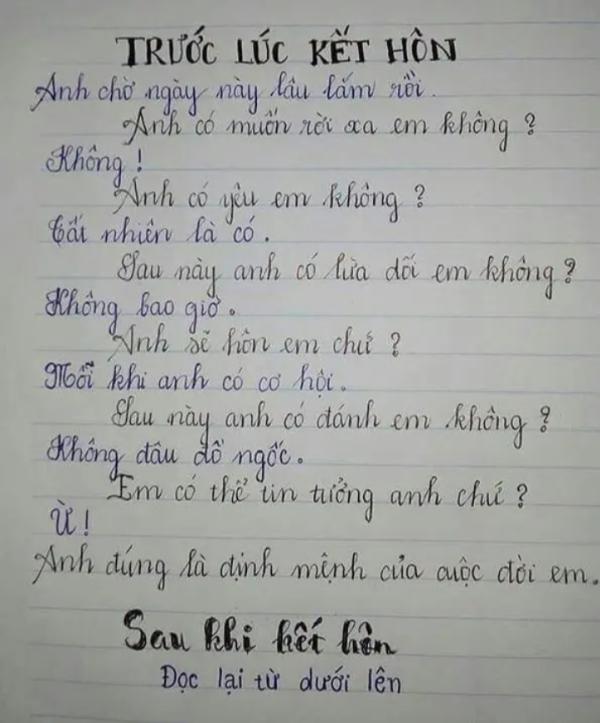 TRƯỚC LÚC KẾT HÔN
Anh chờ ngày này lâu lắm rồi.
Anh có muốn rời xa em không ?
Không !
Anh có yêu em không ?
Tất nhiên là có.
Sau này anh có lừa dối em không ?
Không bao giờ.
Anh sẽ hôn em chứ ?
Mỗi khi anh có cơ hội.
Sau này anh có đánh em không ?
Không đâu đồ ngốc.
Em có thể tin tưởng anh chứ ?
Ừ !
Anh đúng là định mệnh của cuộc đời em.
Sau khi kết hôn
Đọc lại từ dưới lên